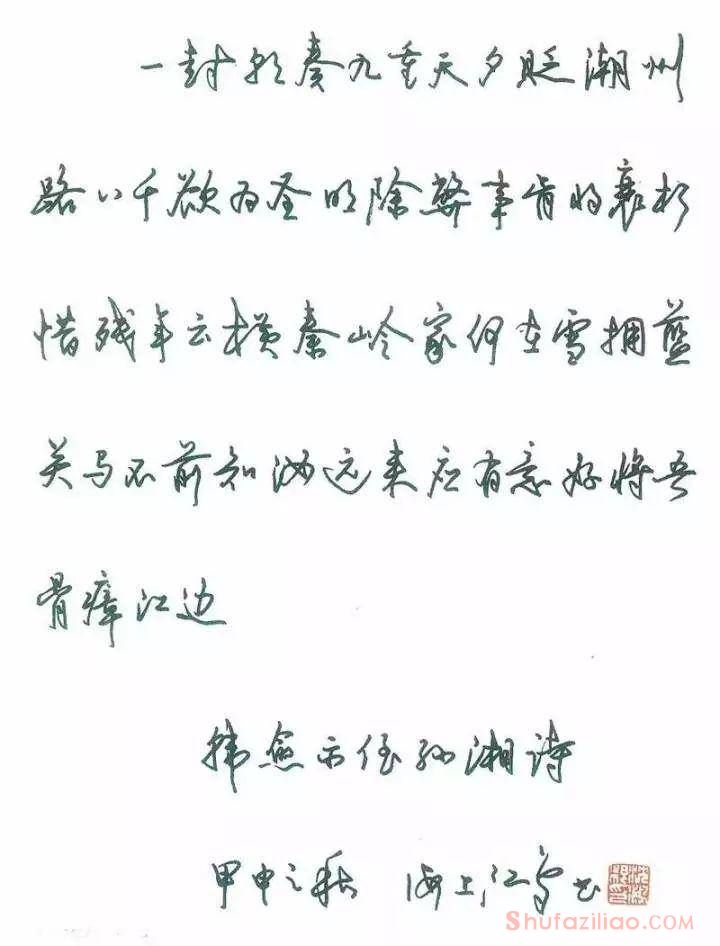 一封朝奏九重天夕贬潮州
路八千欲为圣明除弊事肯将衰朽
惜残年云横秦岭家何在雪拥蓝
关马不前知汝远来应有意好将吾
骨瘴江边
韩愈示侄孙湘诗
甲申之秋 海上江鸟书
ShufaziLiao.COM